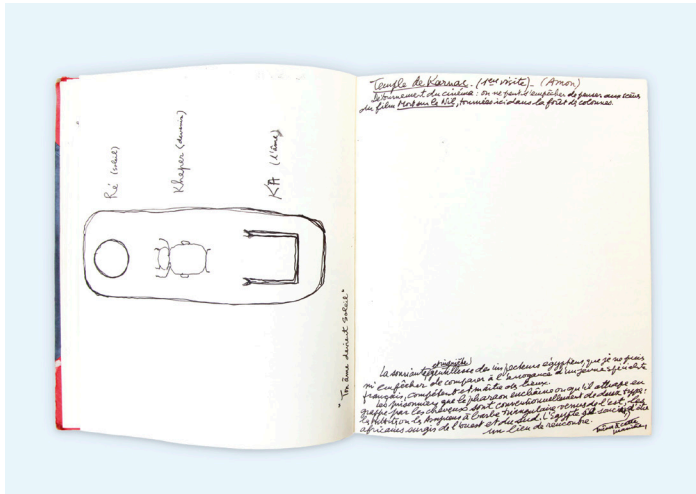 Ré (soleil)
Kheper (devenir)
KA (l'âme)
"Ton âme devient soleil"
Temple de Karnac. (1ère visite)_ (Amon)
Détournement du cinéma : on ne peut s'empêcher de penser aux scènes
du film Mort sur le Nil, tournées ici dans la forêt de colonnes.
La souriante gentillesse des inspecteurs égyptiens, que je ne puis
m'empêcher de comparer à l'arrogance d'un jeune spécialiste
français, compétent et maître des lieux.
Les prisonniers que le pharaon enchaîne ou qu'il attrape en
grappe par les cheveux sont conventionnellement de deux types :
à barbe triangulaire venus de l'est, les
africains surgis de l'ouest et du sud. L'Égypte
un lieu de rencontre.